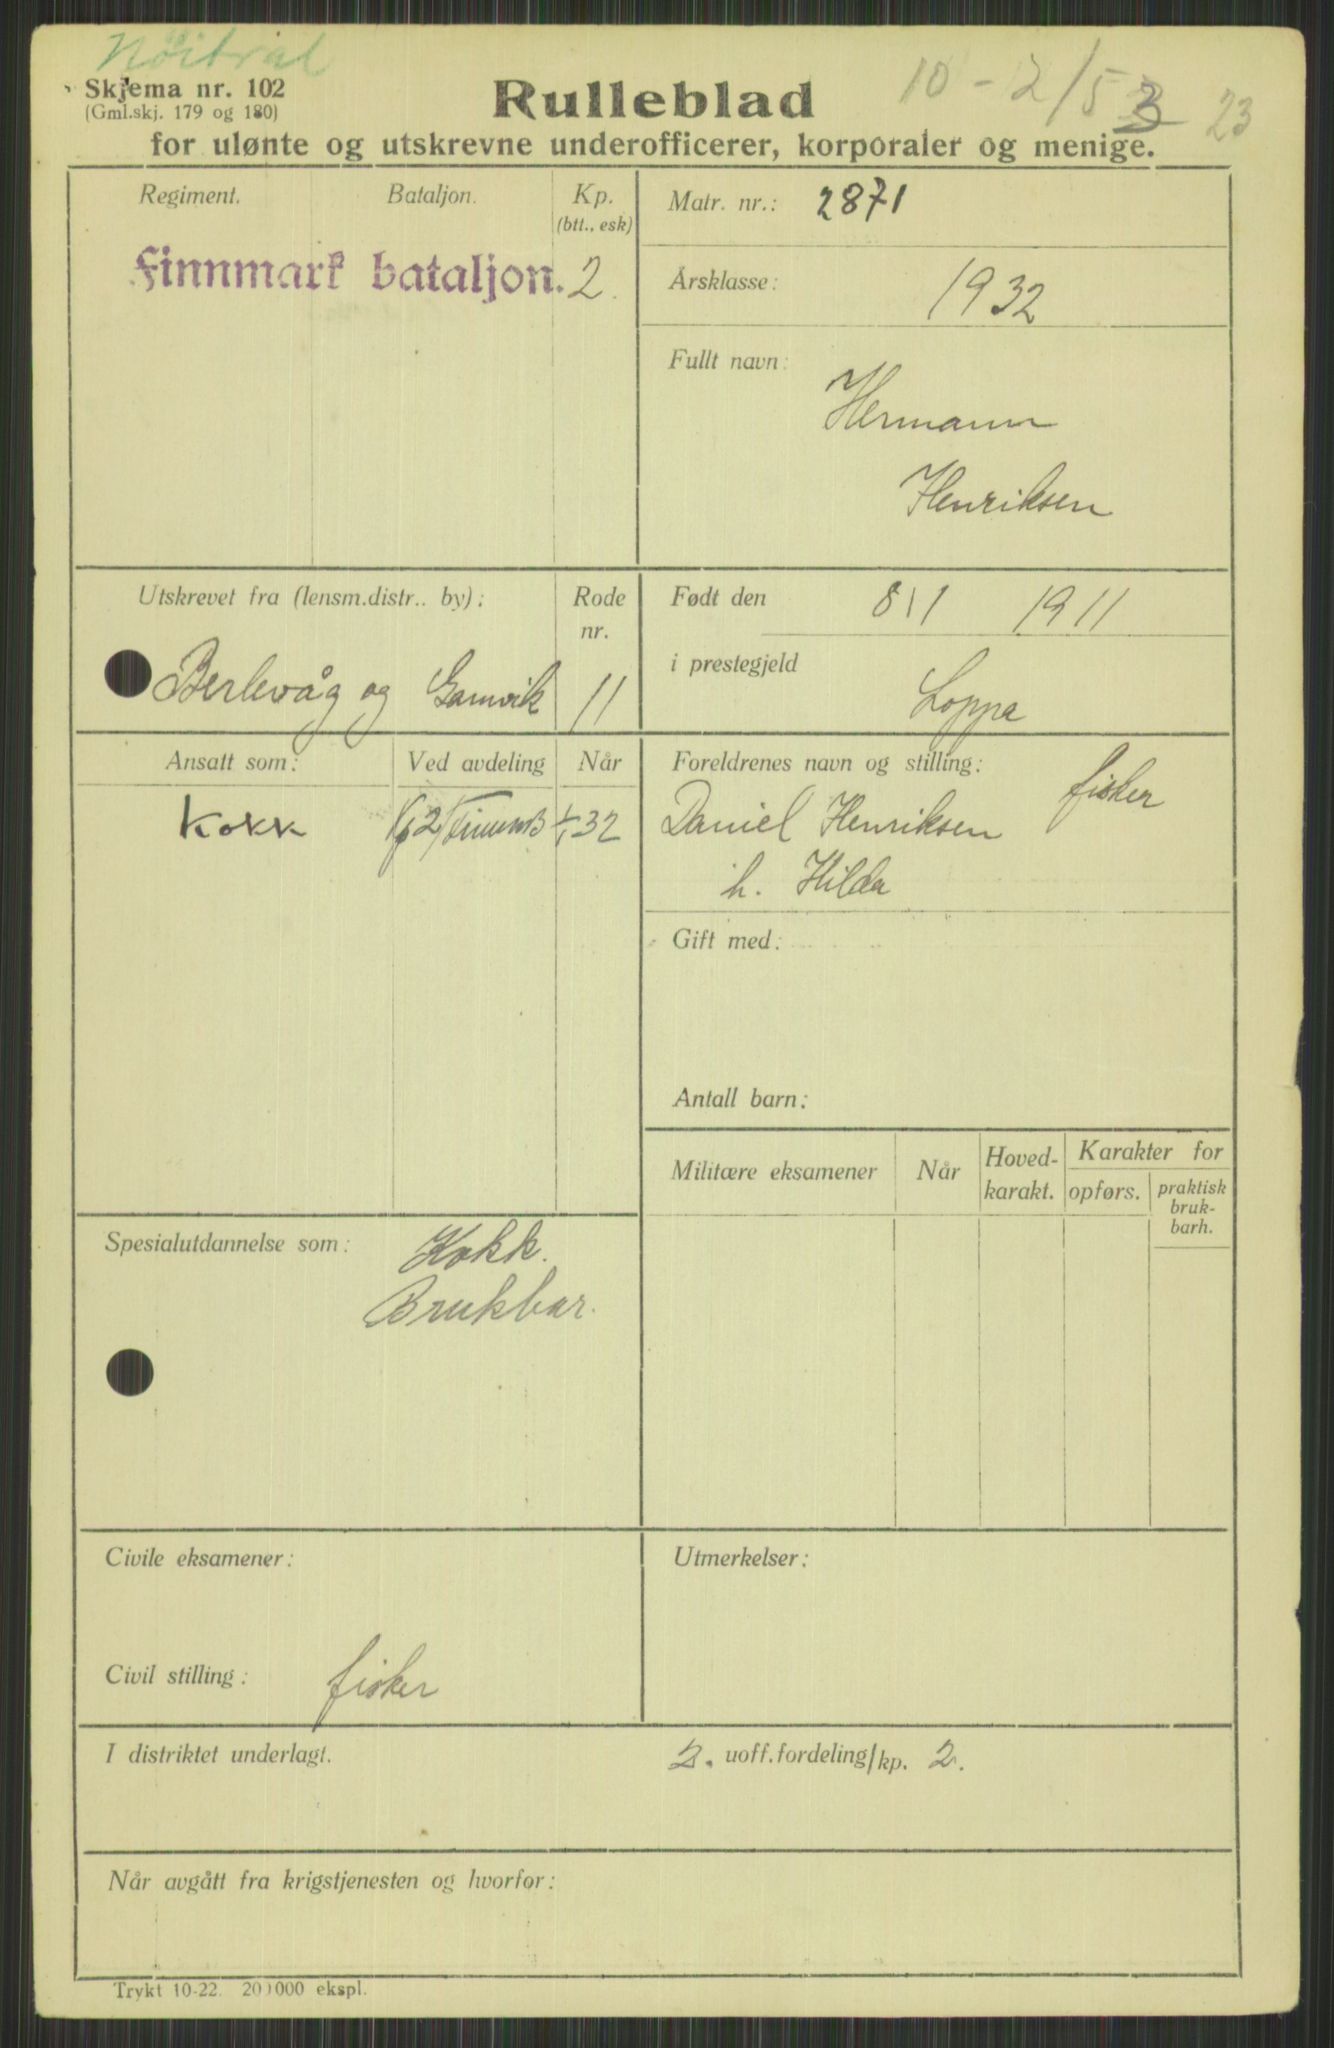 Nöitral
10 - 2/53 23
Skjema nr. 102
(Gml.skj. 179 og 180)
Rulleblad
for ulønte og utskrevne underofficerer, korporaler og menige.
Regiment. Bataljon. Kp.
(btt., esk)
Finnmark bataljon. 2.
Matr. nr.: 2871
Årsklasse: 1932
Fullt navn:
Hermann
Henriksen
Utskrevet fra (lensm.distr.. by): Rode
nr.
Berlevåg og Gamvik 11
Født den 8/1 1911
i prestegjeld Loppa
Ansatt som: Ved avdeling Når
Kokk 32
Foreldrenes navn og stilling: fisker
Daniel Henriksen
h. Hilda
Gift med:
Antall barn:
Militære eksamener Når Hoved-
karakt. Karakter for
opførs. praktisk
bruk-
barh.
Spesialutdannelse som: Kokk.
Brukbar.
Civile eksamener:
Utmerkelser:
Civil stilling: fisker
I distriktet underlagt. 2. uoff.fordeling/kp. 2.
Når avgått fra krigstjenesten og hvorfor:
Trykt 10-22. 200000 ekspl.